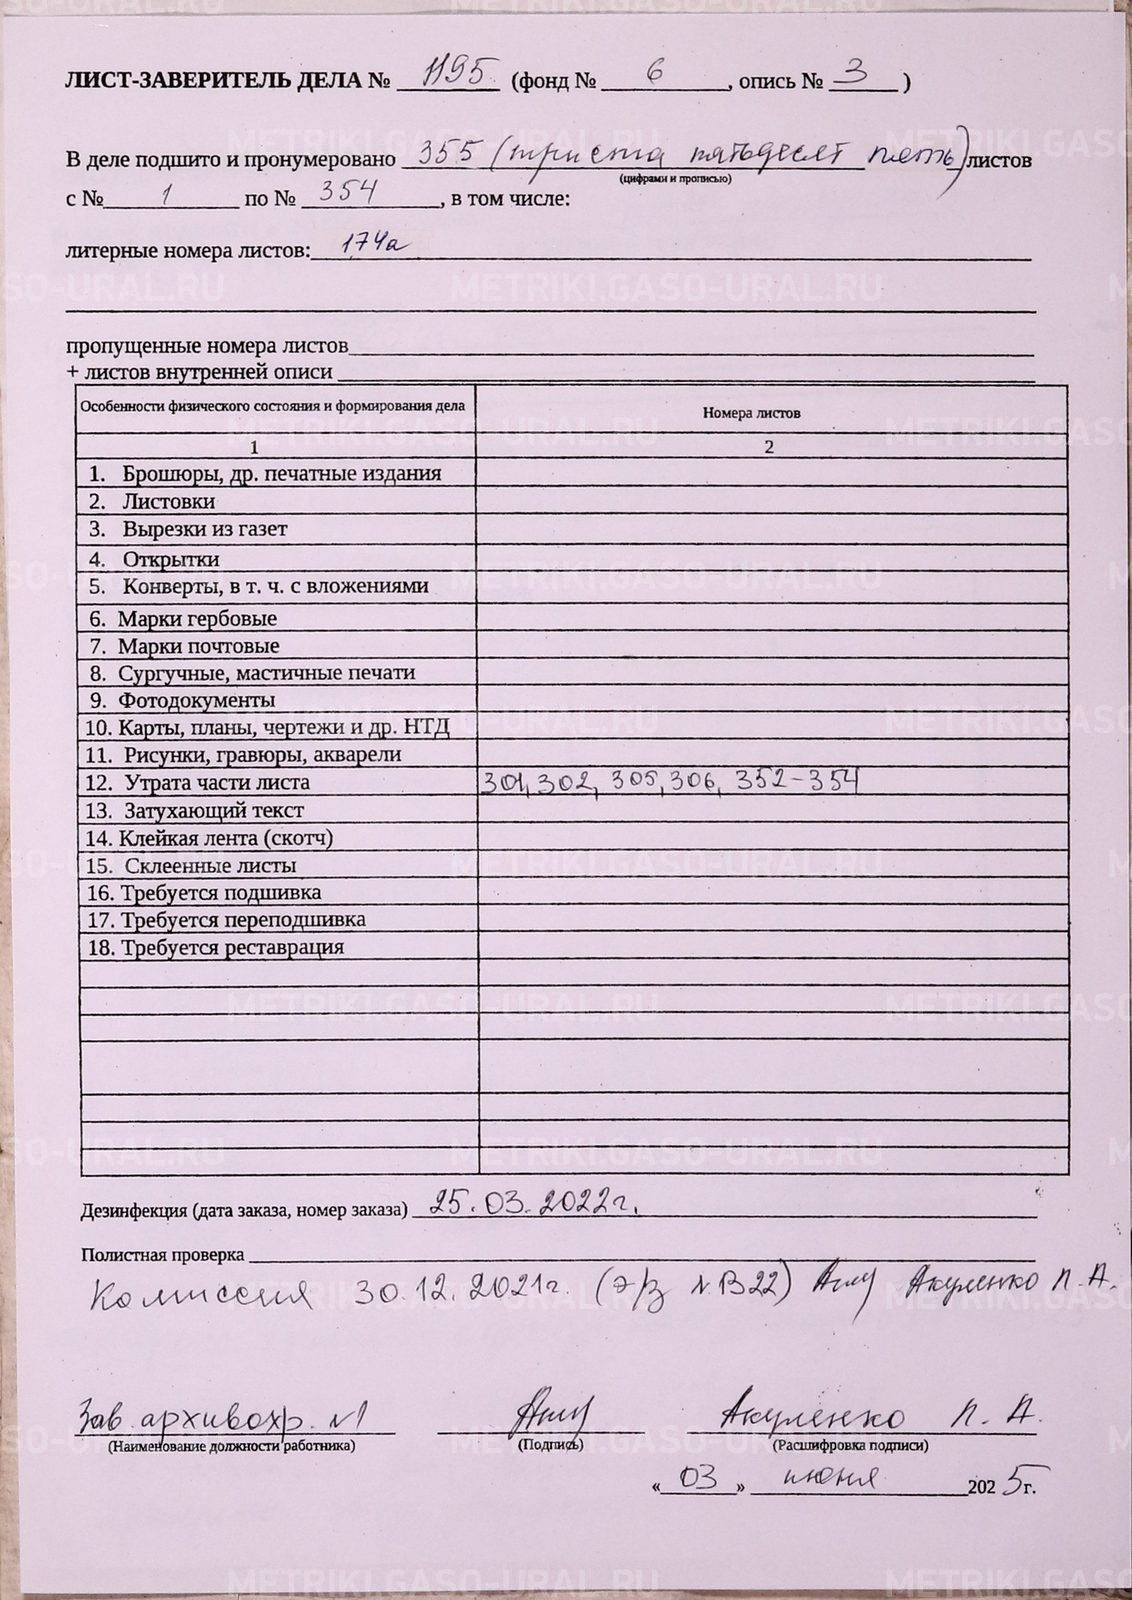 ЛИСТ-ЗАВЕРИТЕЛЬ ДЕЛА № 1195 (фонд № 6, опись № 3)
В деле подшито и пронумеровано 355 (триста пятьдесят пять) листов
(цифрами и прописью)
с № 1 по № 354, в том числе:
литерные номера листов: 174а
пропущенные номера листов
+ листов внутренней описи
Особенности физического состояния и формирования дела Номера листов
1 2
1. Брошюры, др. печатные издания
2. Листовки
3. Вырезки из газет
4. Открытки
5. Конверты, в т. ч. с вложениями
6. Марки гербовые
7. Марки почтовые
8. Сургучные, мастичные печати
9. Фотодокументы
10. Карты, планы, чертежи и др. НТД
11. Рисунки, гравюры, акварели
12. Утрата части листа 301, 302, 305, 306, 352-354
13. Затухающий текст
14. Клейкая лента (скотч)
15. Склеенные листы
16. Требуется подшивка
17. Требуется переподшивка
18. Требуется реставрация
Дезинфекция (дата заказа, номер заказа) 25.03.2022г.
Полистная проверка
Комиссия 30.12.2021г. Акуленко П. А.
Зав. архивохр. №1 Акуленко П. А.
(Наименование должности работника) (Подпись) (Расшифровка подписи)
«03» июня 2025г.
METRIKI.GASO-URAL.RU